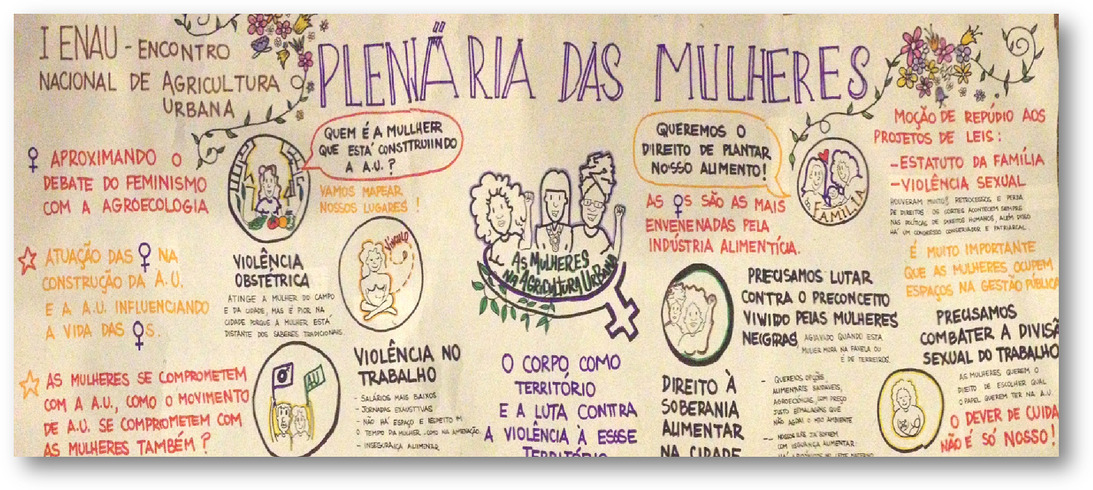 I ENAU - ENCONTRO
NACIONAL DE AGRICULTURA
URBANA
PLENÄRIA DAS MULHERES
♀ APROXIMANDO O
DEBATE DO FEMINISMO
COM A AGROECOLOGIA
ATUAÇÃO DAS ♀ NA
CONSTRUÇÃO DA A.U.
E A A.U. INFLUENCIANDO
A VIDA DAS ♀S.
AS MULHERES SE COMPROMETEM
COM A A.U., COMO O MOVIMENTO
DE A.U. SE COMPROMETEM COM
AS MULHERES TAMBÉM?
QUEM É A MULLHERR
QUE ESTÁ CONSTTRUIINDO
A A.U.?
VAMOS MAPEAR
NOSSOS LUGARES!
VIOLÊNCIA
OBSTÉTRICA
ATINGE A MULHER DO CAMPO
E DA CIDADE, MAS É PIOR NA
CIDADE PORQUE A MULHER ESTÁ
DISTANTE DOS SABERES TRADICIONAIS.
VÍNCULO
AU
VIOLÊNCIA NO
TRABALHO
- SALÁRIOS MAIS BAIXOS
- JORNADAS EXAUSTTIVAS
- NÃO HÁ ESPAÇO E RESPEITO
O TEMPO DA MULHER, COMO NA
- INSEGURANÇA ALIMENAR
AS MULHERES
NA AGRICULTURA URBANA
O CORPO COMO
TERRITÓRIO
E A LUTA CONTTRA
A VIOLÊNCIA À ESSSE
TERRITÓRIO
QUEREMOS O
DIREITO DE PLANTAR
NOSSO ALIMENTO!
AS ♀S SÃO AS MAIS
ENVENENADAS PELA
INDÚSTRIA ALIMENTÍCIA.
PRECISAMOS LUTAR
CONTRA O PRECONCEITO
VIWIDO PEIAS MULHERES
NEIGRAS
AGRAVADO QUANDO ESTA
MULHER MORA NA FAVELA OU
É DE TERREIROS.
DIREITO À
SOBERANIA
ALIMENTAR
NA CIDADE
- QUEREMOS OPÇÕES
ALIMENTARES SAUDÁVEIS,
AGROECOLÓGICAS, COM PREÇO
JUSTO
NÃO AGORA O MEIO AMBIENTE
FAMÍLIA
MOÇÃO DE REPÚDIO AOS
PROJETOS DE LEIS:
- ESTATUTO DA FAMÍLIA
- VIOLÊNCIA SEXUAL
HOUVERAM MUITOS RETROCESSOS E PERDA
DE DIREITOS. OS CORTES ACONTECEM SEMPRE
NAS POLÍTICAS DE DIREITOS HUMANOS, ALÉM DISSO
HÁ UM CONGRESSO CONSERVADOR E PATRIARCAL.
É MUITO IMPORTANTE
QUE AS MULHERES OCUPEM
ESPAÇOS NA GESTÃO PÚBLICA
PRECISAMOS
COMBATER A DIVISÃ
SEXUAL DO TRABALHO
AS MULHERES QUEREM O
DIREITO DE ESCOLHER QUAL
O PAPEL QUEREM TER NA A.U.
O DEVER DE CUIDA
NÃO É SÓ NOSSO!